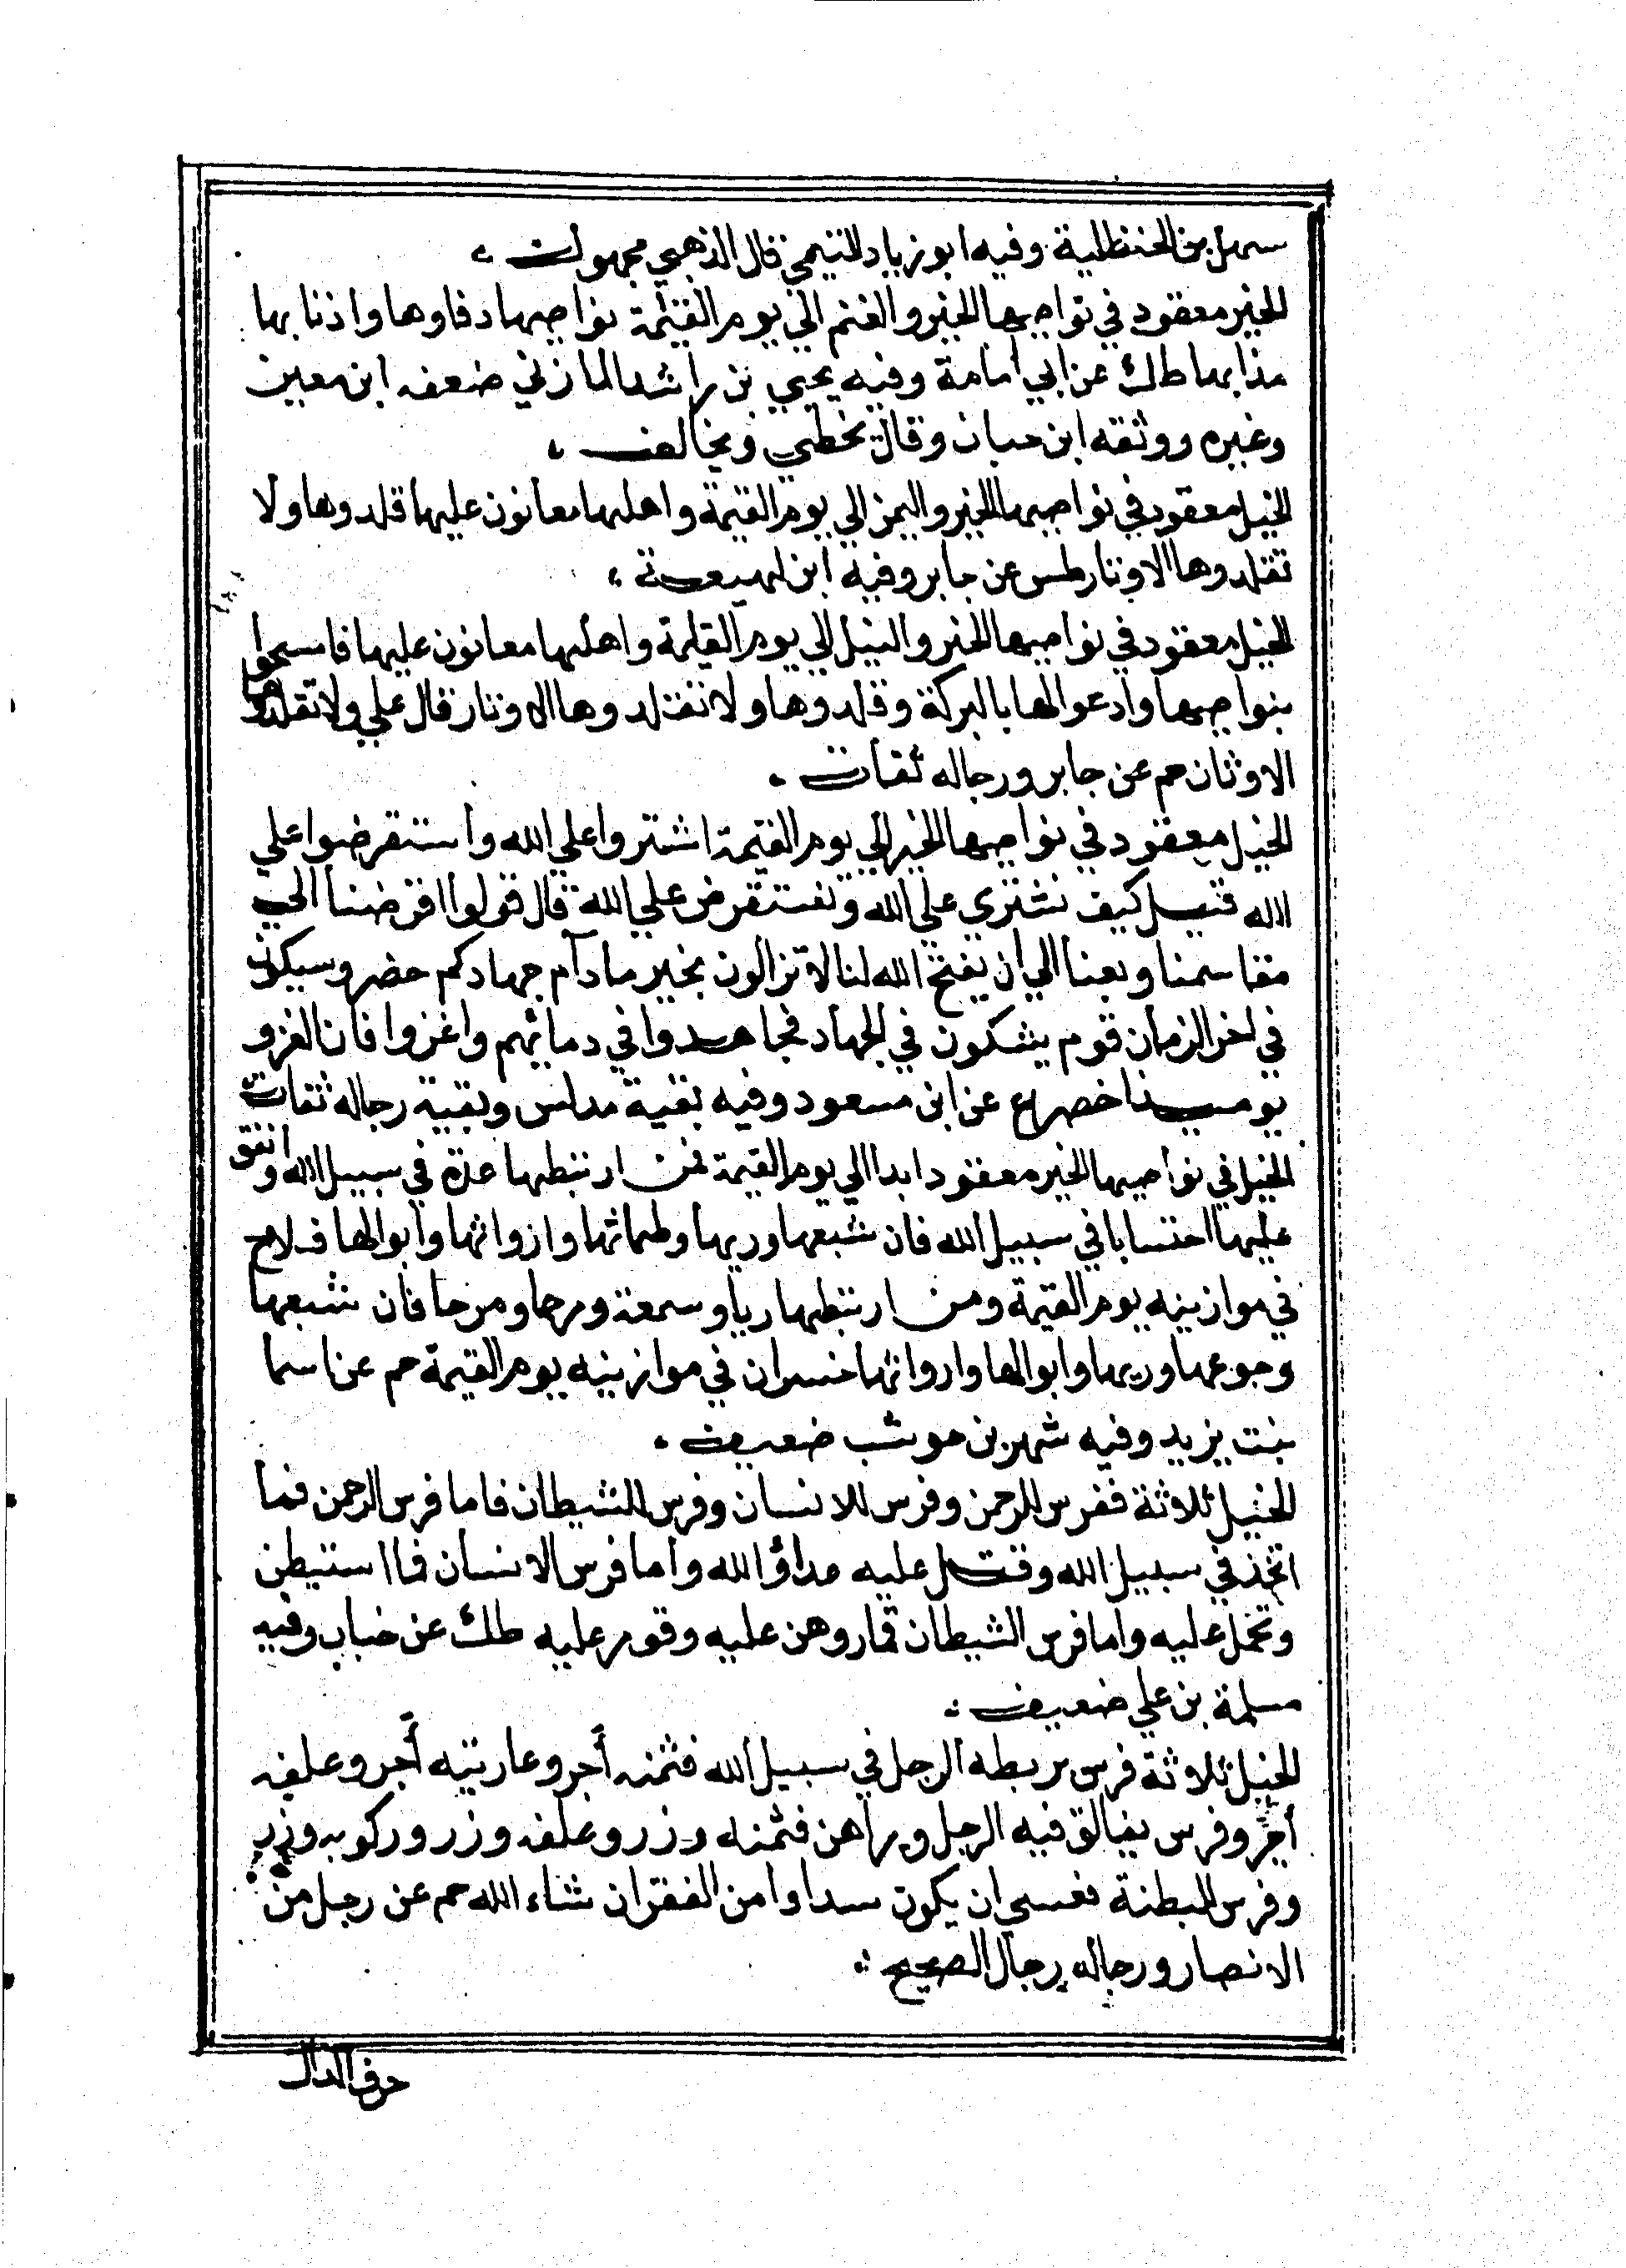 سهل بن الحنظلية وفيه ابو زياد التيمي قال الذهبي مجهول
الخير معقود في نواصيها الخير والغنم الي يوم القيمة نواصيها دفاوها واذنابها
مذابها طك عن ابي أمامة وفيه يحيي بن راشد المازني ضعفه ابن معين
وغيره ووثقه ابن حبان وقال يخطي ويخالف
الخيل معقود في نواصيها الخير واليمن الي يوم القيمة واهلها معانون عليها قلدوها ولا
تقلدوها الاوتار طس عن جابر وفيه ابن لهيعة
الخيل معقود في نواصيها الخير والنيل الي يوم القيمة واهلها معانون عليها فامسحوا
بنواصيها وادعوا لها بالبركة وقلدوها ولا تقلدوها الاوتار قال علي ولا تقلدوها
الاوثان حم عن جابر ورجاله ثقات
الخيل معقود في نواصيها الخير الي يوم القيمة اشتروا علي الله وأستقرضوا علي
الله قيل كيف نشتري علي الله ونستقرض علي الله قال قولوا اقرضنا الي
مقاسمنا وبعنا الي ان يفتح الله لنا لا تزالون بخير مادآم جهادكم خضر وسيكون
في اخر الزمان قوم يشكون في الجهاد فجاهدوا في دمائهم واغزوا فان الغزو
يوميذ اخضر ع عن ابن مسعود وفيه بقية مدلس وبقية رجاله ثقات
الخيل في نواصيها الخير معقود ابدا الي يوم القيمة فمن ارتبطها عدة في سبيل الله وانفق
عليها احتسابا في سبيل الله فان شبعها وريها وظمائها وازواثها وابوالها فلاح
في موازينه يوم القيمة ومن ارتبطها رياو سمعة ومرحا ومرحا فان شبعها
وجوعها وريها وابوالها واروائها خسران في موازينه يوم القيمة حم عن اسما
بنت يزيد وفيه شهر بن حوشب ضعيف
الخيل ثلاثة ففرس للرحمن وفرس للانسان وفرس للشيطان فاما فرس الرحمن فما
اتخذ في سبيل الله وقتل عليه عداؤ الله وأما فرس الانسان فما استبطن
وتحمل عليه واما فرس الشيطان قماروهن عليه وقومر عليه طك عن خباب وفيه
مسلمة بن علي ضعيف
الخيل ثلاثة فرس يربطه الرجل في سبيل الله فثمنه أجر وعاريته أجر وعلفه
أجر وفرس يغالق فيه الرجل ويراهن فثمنه وزر وعلفه وزر وركوبه وزر
وفرس للبطنة فعسي ان يكون سدادا من الفقر ان شاء الله حم عن رجل من
الانصار ورجاله رجال الصحيح
حرف الدال